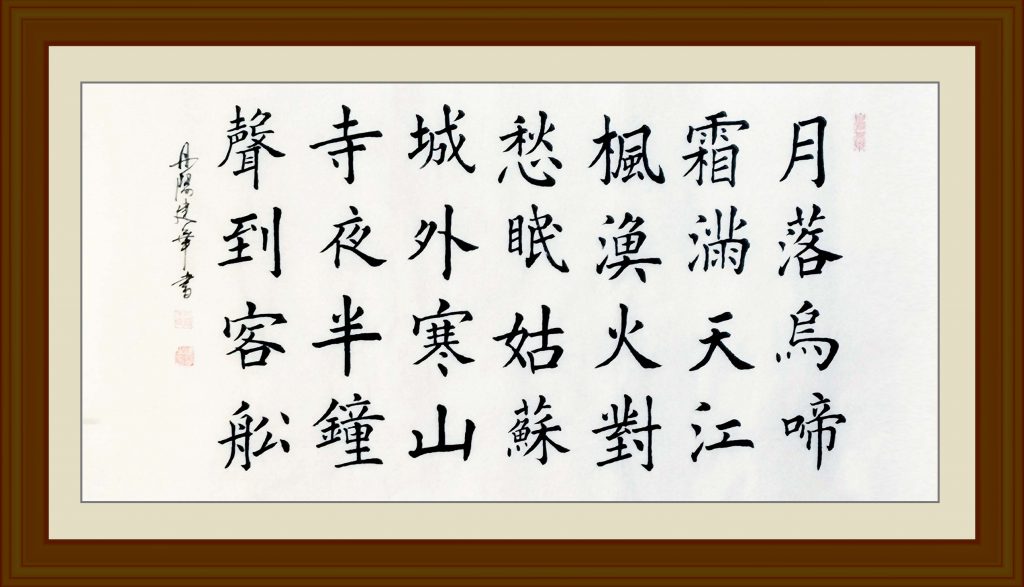 月落烏啼
霜滿天江
楓漁火對
愁眠姑蘇
城外寒山
寺夜半鐘
聲到客船
丹陽建華書